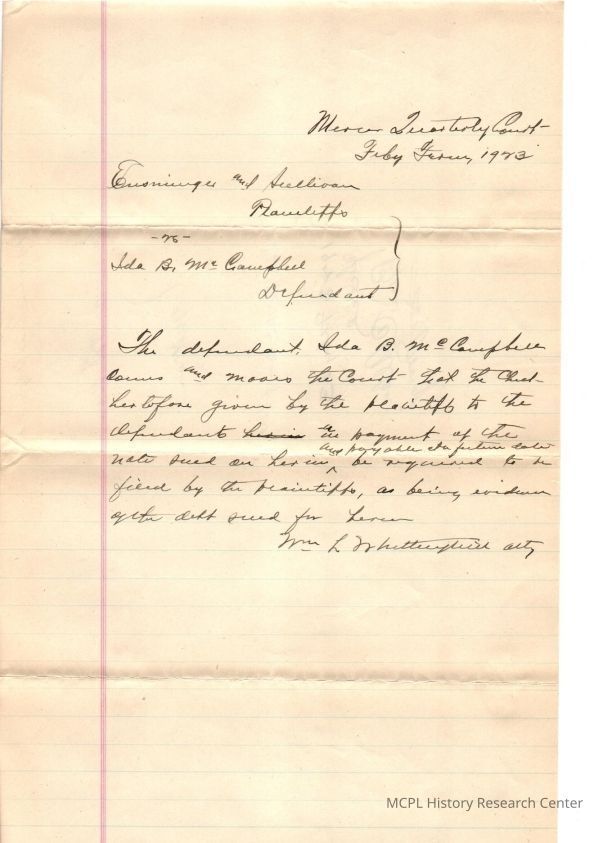 Mercer Quarterly Court
Feby Term, 1923
Ensminger and Sullivan
Plaintiffs
-vs-
Ida B. McCampbell
Defendant
The defendant, Ida B. McCampbell
comes and moves the Court that the Check
hertofore given by the plaintiffs to the
defendants herein in payment of the
and payable at a future date
note sued on herein, be required to be
filed by the plaintiffs, as being evidence
of the debt sued for herein
Wm L Whittinghill atty
MCPL History Research Center